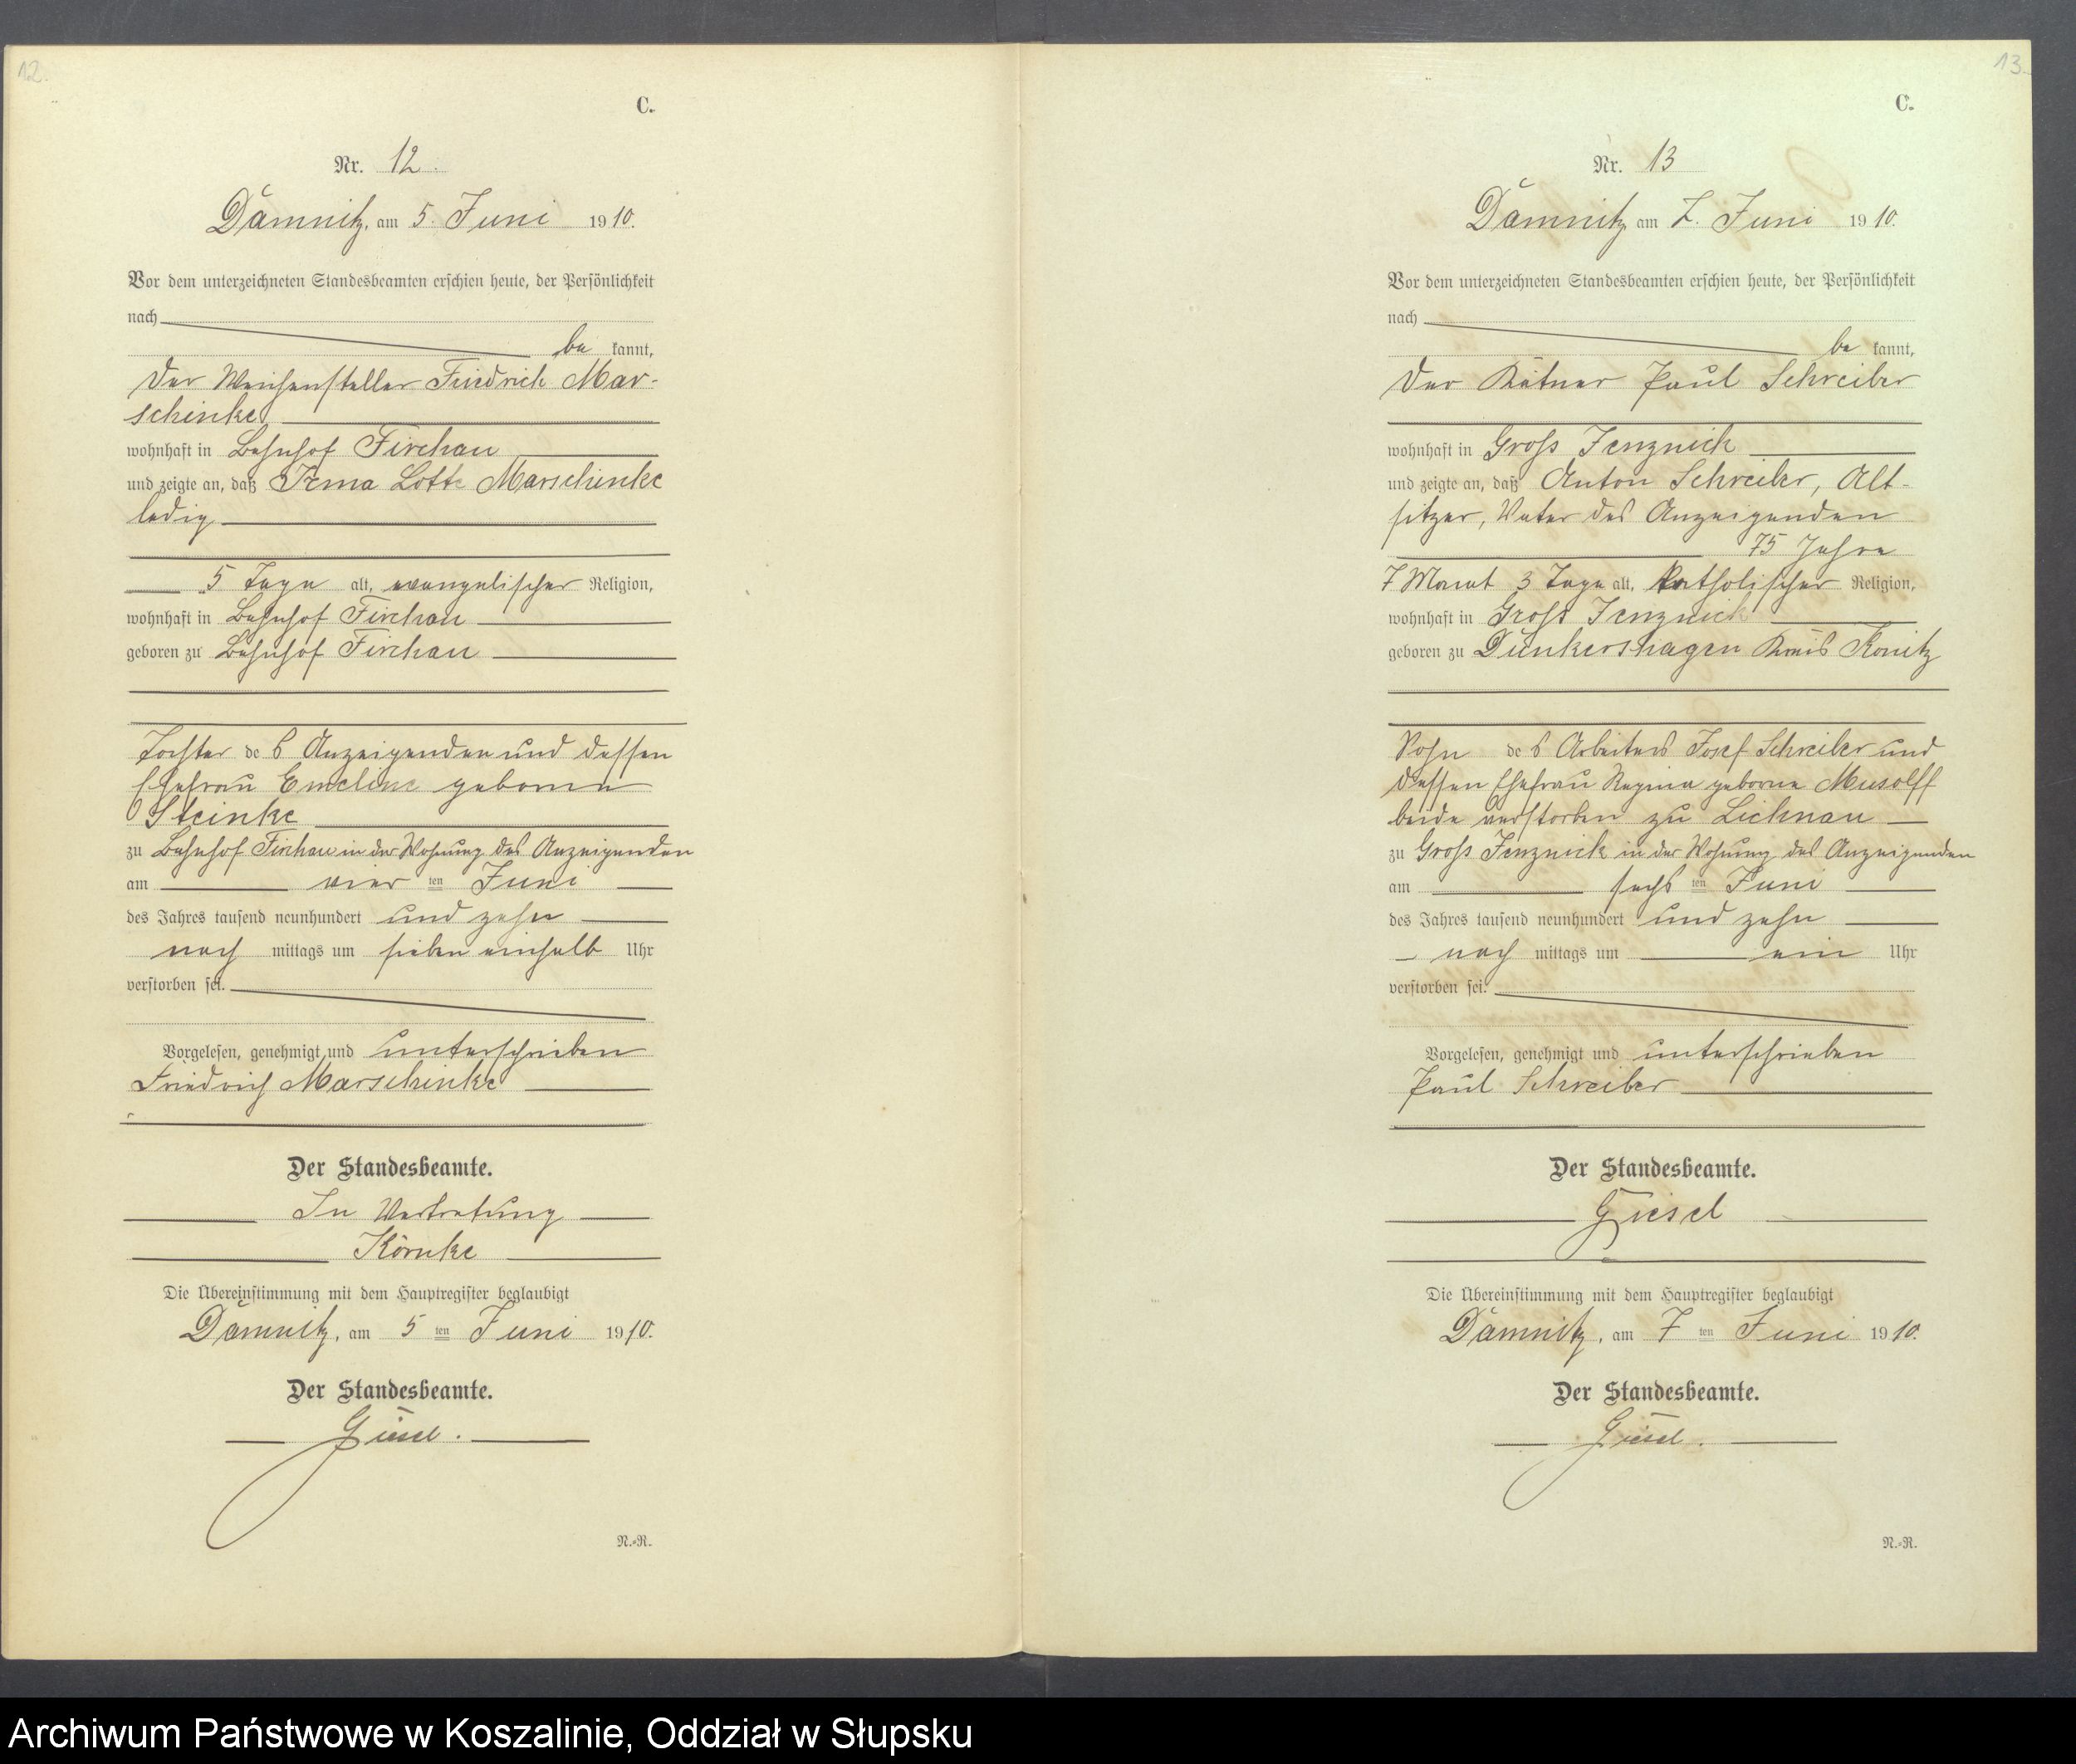 12.
C.
Nr. 12
Dämnitz, am 5. Juni 1910.
Vor dem unterzeichneten Standesbeamten erschien heute, der Persönlichkeit
nach
be kannt,
der Weichensteller Friedrich Mar-
schinke
wohnhaft in Bahnhof Firchau
und zeigte an, daß Irma Lotte Marschinke
ledig
5 Tage alt, evangelischer Religion,
wohnhaft in Bahnhof Firchau
geboren zu Bahnhof Firchau
Tochter des Anzeigenden und dessen
Ehefrau Emeline geborene
Steinke
zu Bahnhof Firchau in der Wohnung des Anzeigenden
am vier ten Juni
des Jahres tausend neunhundert und zehn
nach mittags um sieben einhalb Uhr
verstorben sei.
Vorgelesen, genehmigt und unterschrieben
Friedrich Marschinke
Der Standesbeamte.
In Vertretung
Körnke
Die Übereinstimmung mit dem Hauptregister beglaubigt
Dämnitz, am 5 ten Juni 1910.
Der Standesbeamte.
Giesel.
N.-R.
13.
C.
Nr. 13
Dämnitz am 7. Juni 1910.
Vor dem unterzeichneten Standesbeamten erschien heute, der Persönlichkeit
nach
be kannt,
der Kätner Paul Schreiber
wohnhaft in Gross Jenznick
und zeigte an, daß Anton Schreiber, Alt-
sitzer, Vater des Anzeigenden
75 Jahre
7 Monat 3 Tage alt, katholischer Religion,
wohnhaft in Gross Jenznick
geboren zu Dunkershagen Kreis Konitz
Sohn des Arbeiters Josef Schreiber und
dessen Ehefrau Regina geborne Musolff
beide verstorben zu Lichnau
zu Gross Jenznick in der Wohnung des Anzeigenden
am sechs ten Juni
des Jahres tausend neunhundert und zehn
nach mittags um ein Uhr
verstorben sei.
Vorgelesen, genehmigt und unterschrieben
Paul Schreiber
Der Standesbeamte.
Giesel
Die Übereinstimmung mit dem Hauptregister beglaubigt
Dämnitz, am 7 ten Juni 1910.
Der Standesbeamte.
Giesel.
N.-R.
Archiwum Państwowe w Koszalinie, Oddział w Słupsku